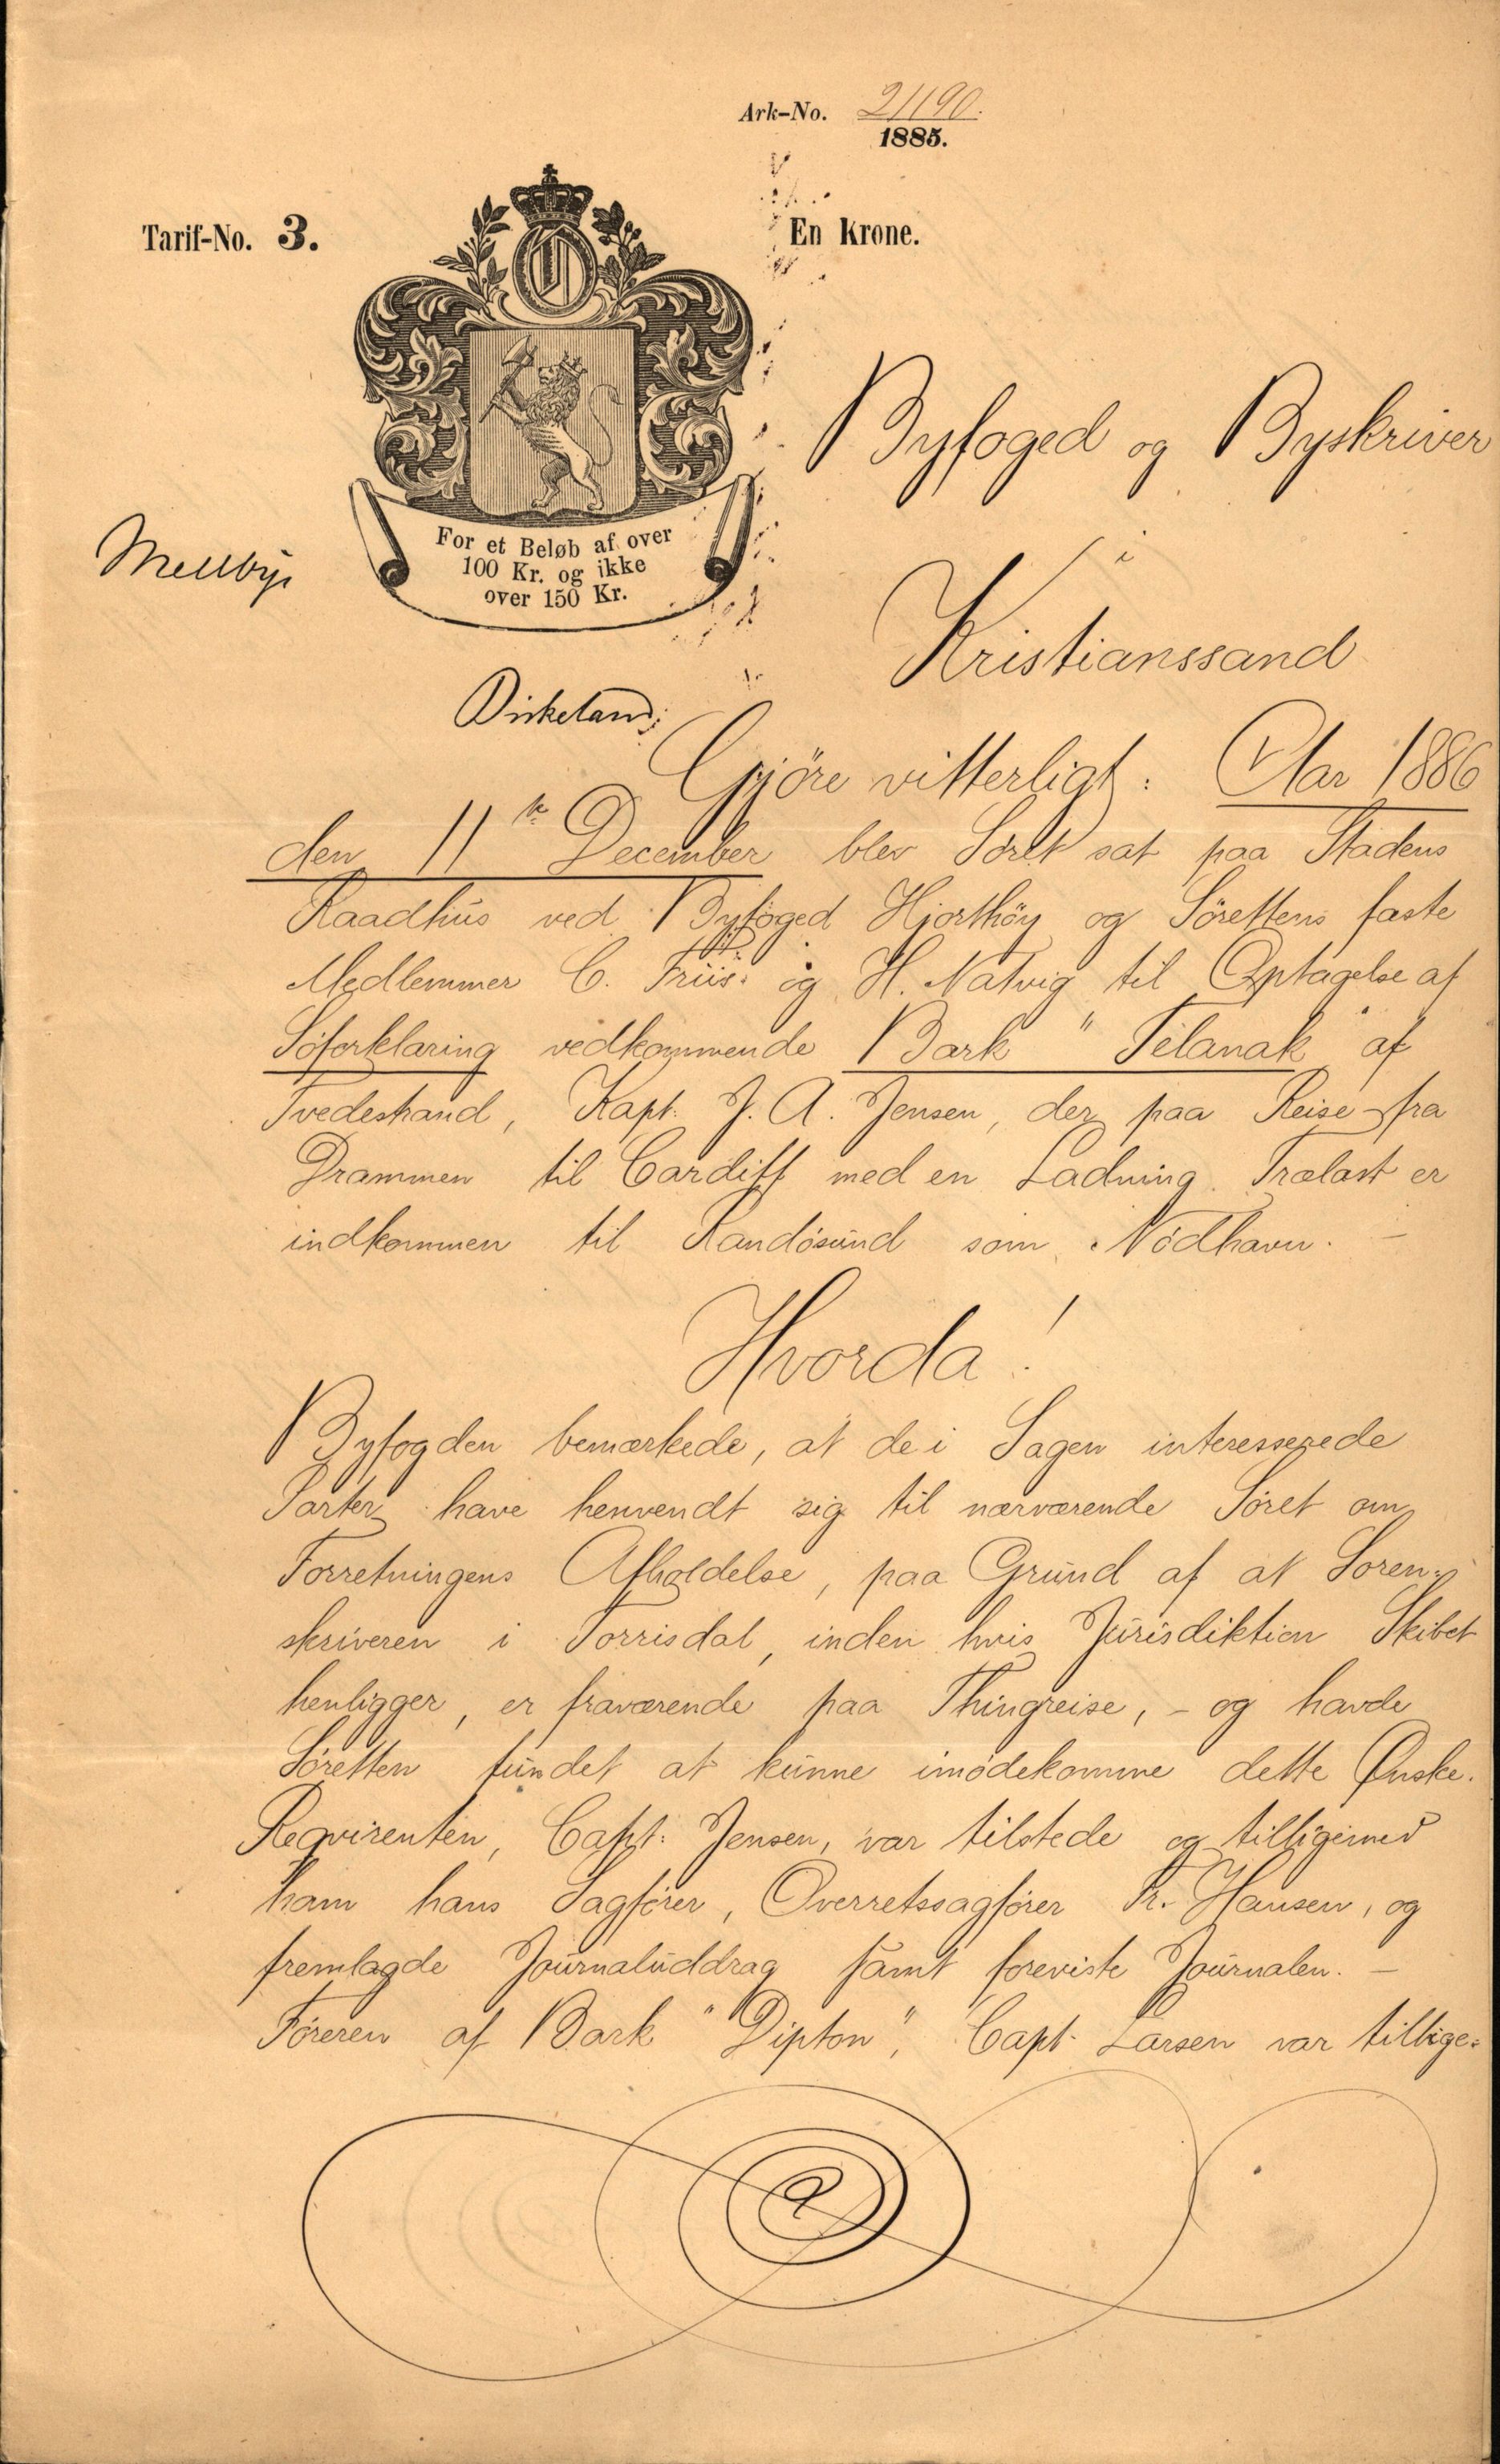 Ark-No. 21190.
1885.
Tarif-No. 3.
En Krone.
For et Beløb af over
100 Kr. og ikke
over 150 Kr.
Byfoged og Byskriver
i
Kristianssand
Gjöre vitterligt: Aar 1886
den 11te December blev Söret sat paa Stadens
Raadhus ved Byfoged Hjorthöy og Sörettens faste
Medlemmer C. Friis og H. Natvig til Optagelse af
Söforklaring vedkommende Bark "Telanak" af
Tvedestrand, Kapt. J. A. Jensen, der paa Reise fra
Drammen til Cardiff med en Ladning Trælast er
indkommen til Randösund som Nödhavn. –
Hvorda!
Byfogden bemærkede, at de i Sagen interesserede
Parter have henvendt sig til nærværende Söret om
Forretningens Afholdelse, paa Grund af at Soren-
skriveren i Torrisdal, inden hvis Jurisdiktion Skibet
henligger, er fraværende paa Thingreise, – og havde
Söretten fundet at kunne imödekomme dette Ønske.
Reqvirenten, Capt: Jensen, var tilstede og tilligemed
ham hans Sagfører, Overretssagfører Fr. Hansen, og
fremlagde Journaluddrag samt foreviste Journalen. –
Føreren af Bark "Dipton", Capt. Larsen var tillige=